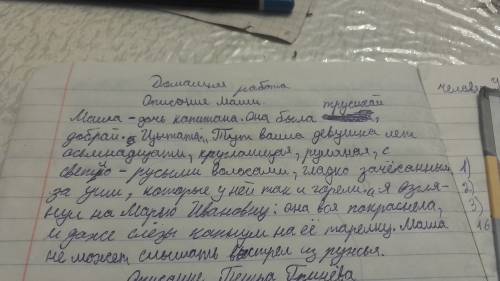 Домашняя
работа
Описание Маши.
Маша - дочь капитана. Она была трусихой,
доброй. Цытата: „Тут вошла девушка лет
осьмнадцати, круглолицая, румяная, с
светло - русыми волосами, гладко зачёсанными
за уши, которые у ней так и горели. „Я взгля-
нул на Марью Ивановну: она вся покраснела,
и даже слёзы капнули на её тарелку. Маша
не может слышать выстрел из ружья.
Описание Петра Гринёва
челове
1)
2)
3)